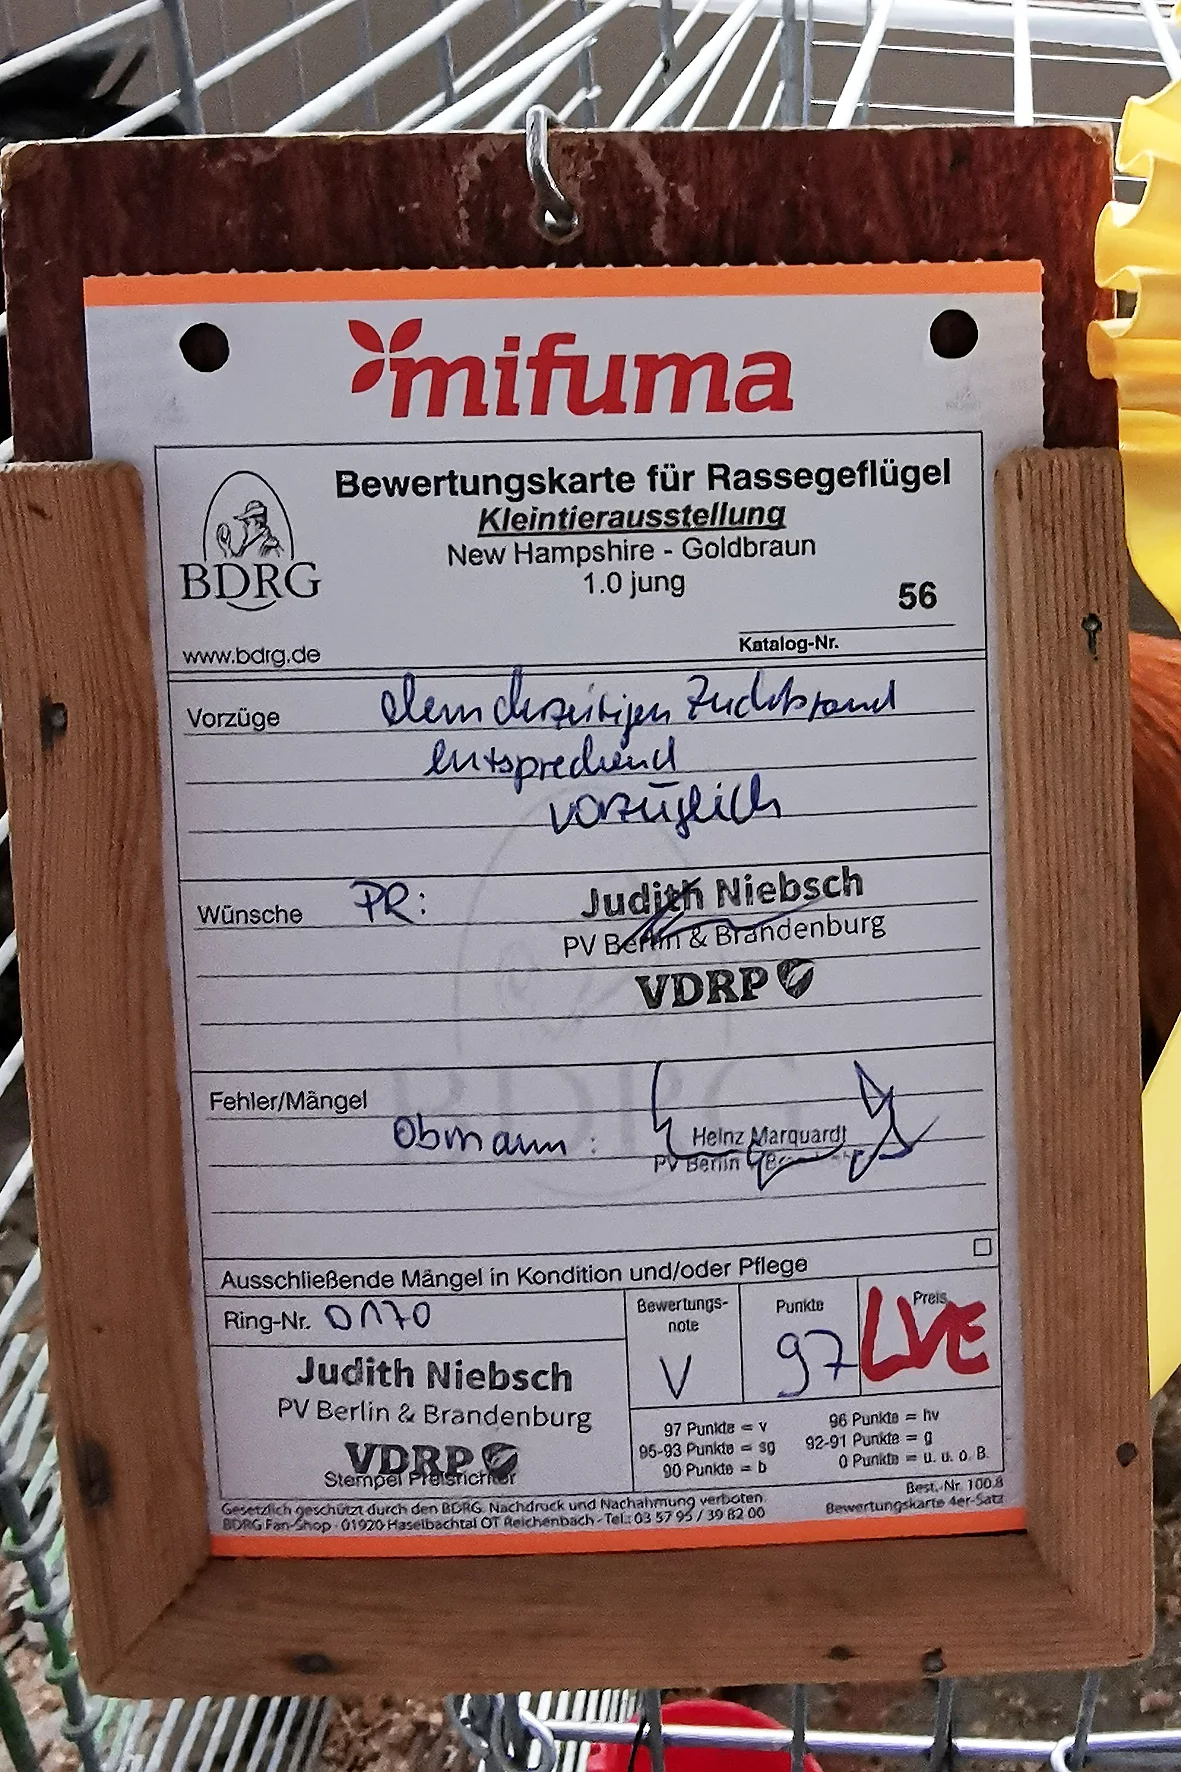 mifuma
Bewertungskarte für Rassegeflügel
Kleintierausstellung
New Hampshire - Goldbraun
1.0 jung
56
Katalog-Nr.
BDRG
www.bdrg.de
Vorzüge dem derzeitigen Zuchtstand
entsprechend
vorzüglich
Wünsche PR: Judith Niebsch
PV Berlin & Brandenburg
VDRP
BDRG
Fehler/Mängel
Obmann: Heinz Marquardt
PV Berlin
Ausschließende Mängel in Kondition und/oder Pflege
Ring-Nr. D170
Bewertungs-
note
V
Punkte
97
Preis
LVE
Judith Niebsch
PV Berlin & Brandenburg
VDRP
Stempel Preisrichter
97 Punkte = v
96 Punkte = hv
95-93 Punkte = sg
92-91 Punkte = g
90 Punkte = b
0 Punkte = u. u. o. B.
Gesetzlich geschützt durch den BDRG. Nachdruck und Nachahmung verboten.
BDRG Fan-Shop · 01920 Haselbachtal OT Reichenbach - Tel.: 03 57 95 / 39 82 00
Best.-Nr. 100.8
Bewertungskarte 4er-Satz